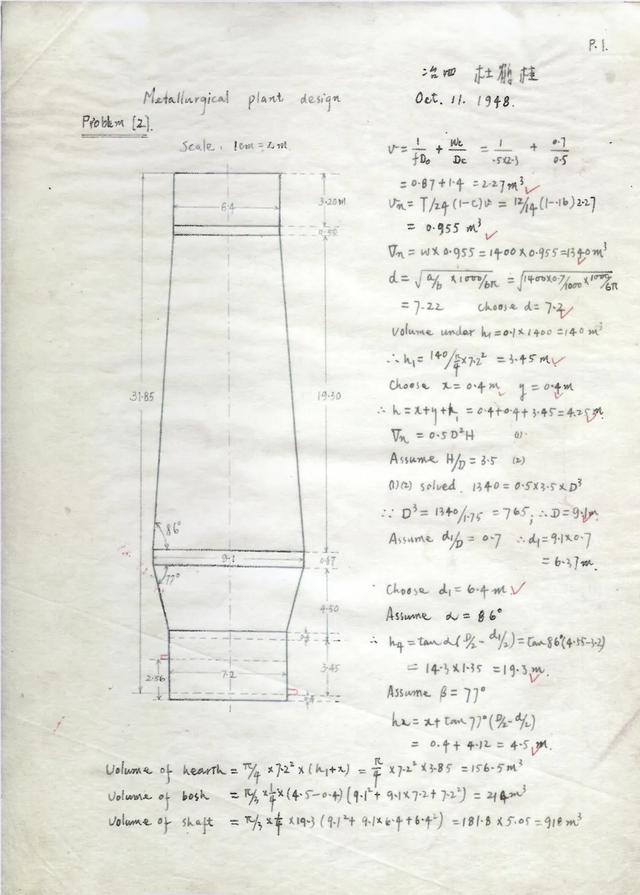 P.1.
冶四 杜鹤桂
Metallurgical plant design
Oct. 11. 1948.
Problem [2].
Scale: 1cm = 2m
v = 1/fD₀ + Wc/Dc = 1/.5(2.3) + 0.7/0.5
= 0.87 + 1.4 = 2.27 m³
= 0.955 m³
Vn = W × 0.955 = 1400 × 0.955 = 1340 m³
= 7.22 choose d = 7.2
Volume under h₁ = 0.1 × 1400 = 140 m³
∴ h₁ = 140/π/4 × 7.2² = 3.45 m
Choose x = 0.4 m, y = 0.4 m
∴ h = x + y + h₁ = 0.4 + 0.4 + 3.45 = 4.25 m
Vn = 0.5 D²H (1)
Assume H/D = 3.5 (2)
(1)(2) solved. 1340 = 0.5 × 3.5 × D³
∴ D³ = 1340/1.75 = 765; ∴ D = 9.1 m
Assume d₁/D = 0.7 ∴ d₁ = 9.1 × 0.7
= 6.37 m.
Choose d₁ = 6.4 m
Assume α = 86°
∴ h₄ = tan α (D/2 - d₁/2) = tan 86° (4.55 - 3.2)
= 14.3 × 1.35 = 19.3 m.
Assume β = 77°
h₂ = x + tan 77° (D/2 - d/2)
= 0.4 + 4.12 = 4.5 m.
6.4
3.20 M
0.58
31.85
19.30
86°
9.1
0.87
77°
4.50
7.2
2.56
3.45
Volume of hearth = π/4 × 7.2² × (h₁ + x) = π/4 × 7.2² × 3.85 = 156.5 m³
Volume of bosh = π/3 × 1/4 × (4.5 - 0.4) (9.1² + 9.1 × 7.2 + 7.2²) = 214 m³
Volume of shaft = π/3 × 1/4 × 19.3 (9.1² + 9.1 × 6.4 + 6.4²) = 181.8 × 5.05 = 918 m³